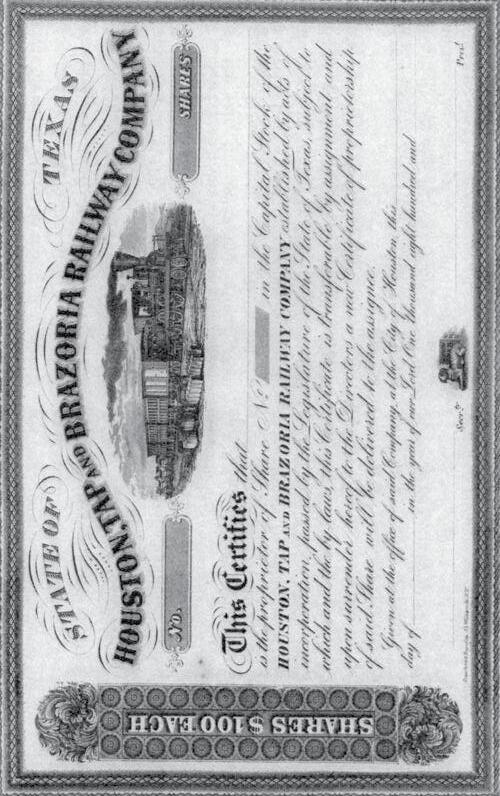 STATE OF TEXAS
HOUSTON, TAP AND BRAZORIA RAILWAY COMPANY
NO. SHARES
This Certifies that
is the proprietor of Share No. in the Capital Stock of the
HOUSTON, TAP AND BRAZORIA RAILWAY COMPANY established by acts of
incorporation, passed by the Legislature of the State of Texas, subject to
which and the by laws, this Certificate is transferable by assignment and
upon surrender hereof to the Directors a new Certificate of proprietorship
of said Share will be delivered to the assignee.
Given at the office of said Company, at the City of Houston, this
day of in the year of our Lord One thousand eight hundred and
Secy. Prest.
SHARES $100 EACH